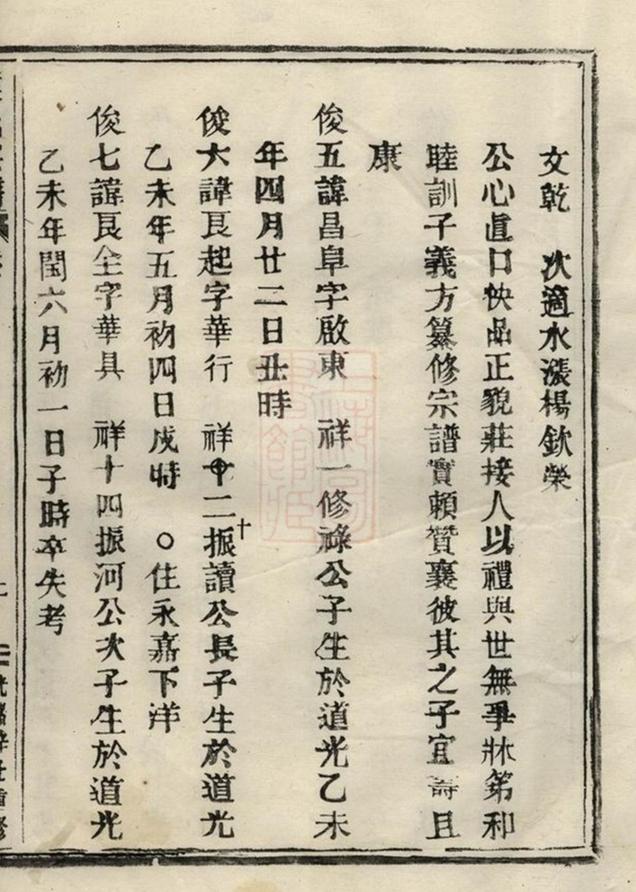 文乾　次適水漲楊欽榮
公心直口快品正貌莊接人以禮與世無爭牀第和
睦訓子義方纂修宗譜實賴贊襄彼其之子宜壽且
康
俊五諱昌阜字啟東　祥一修祿公子生於道光乙未
年四月廿二日丑時
俊六諱良起字華行　祥中二振讀公長子生於道光
十
乙未年五月初四日戌時　○住永嘉下洋
俊七諱良全字華具　祥十四振河公次子生於道光
乙未年閏六月初一日子時卒失考